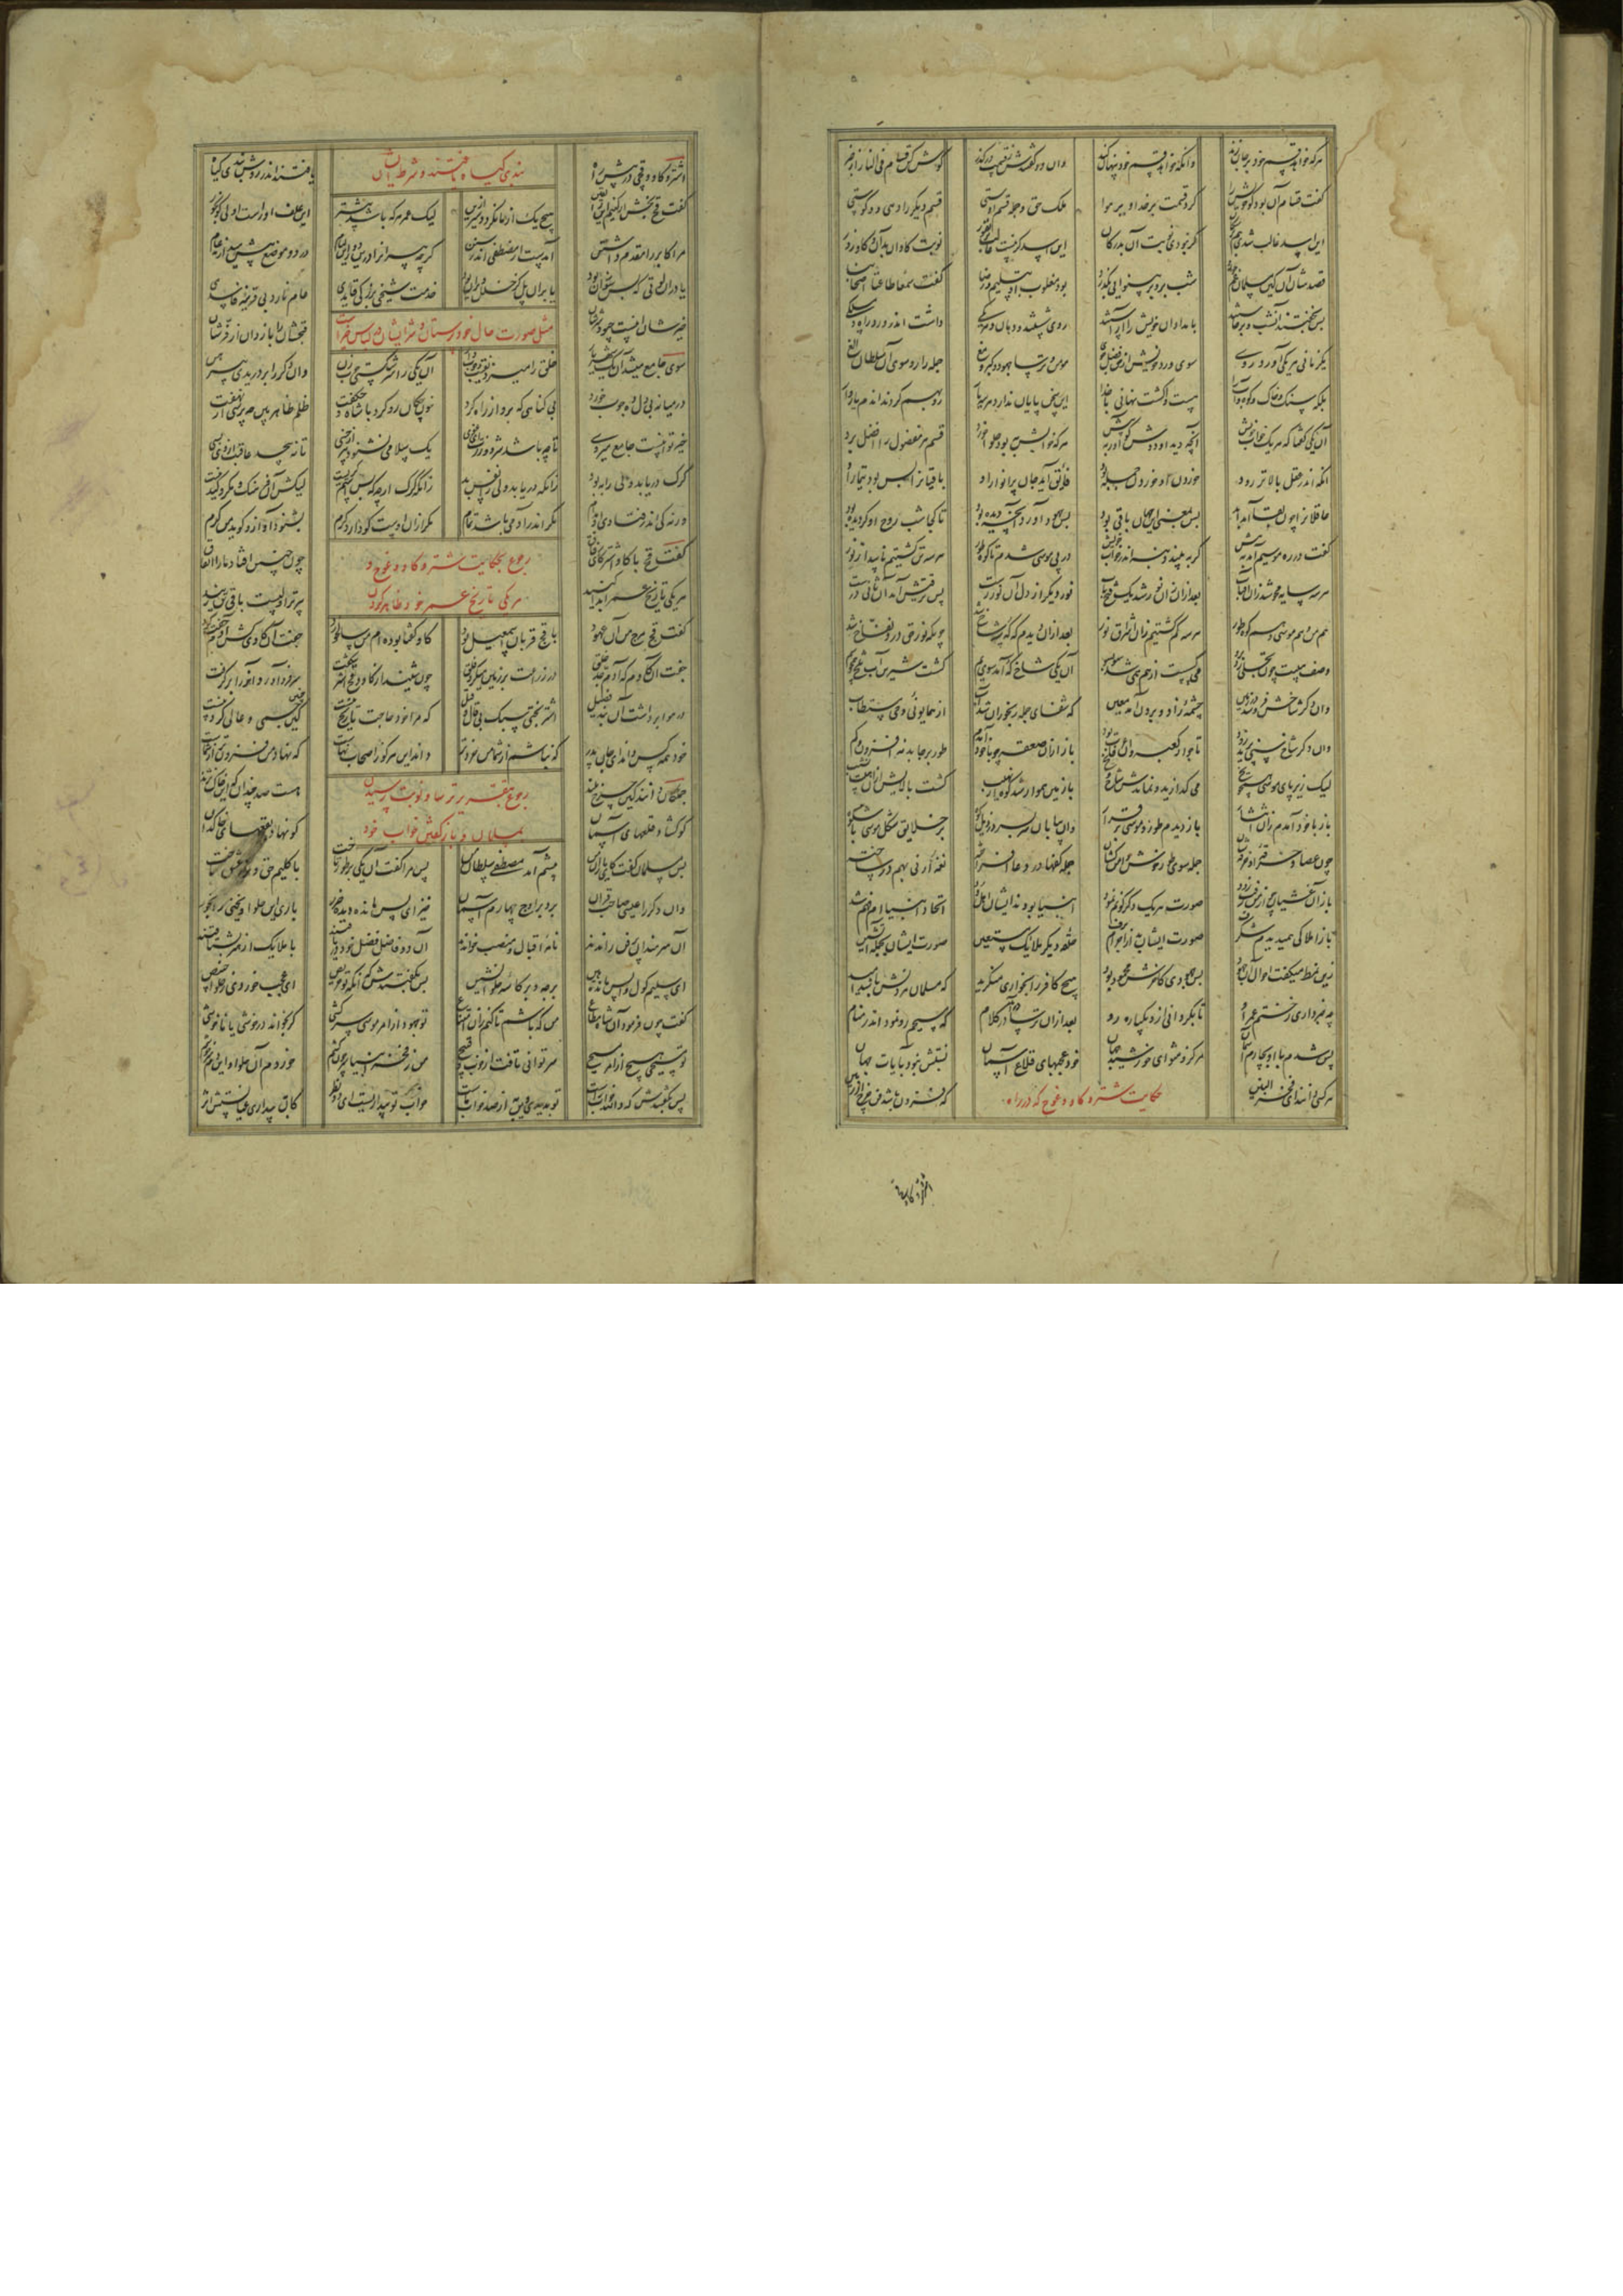 هر که خواهد قسم خود بر جان زند وانکه خواهد قسم خود پنهان کند وان دو گفتندش ز قسمت درگذر گوش کن قسام فی النار از خبر
گفت قسام آن بود کو خویش را کرد قسمت بر خدا و بر هوا ملک حق و جمله قسم اوستی قسم دیگر را دهی دو گوستی
این اسد غالب شدی هم بر سگان گر نبودی نوبت آن بدرگان این اسد نوبت کاوان بدان کاو زور
قصدشان آن کین مسلمان غم خورد شب برو در بینوایی بگذرد بود مغلوب او بتسلیم و رضا گفت سمعا طاعة اصحابنا
پس بخفتند آنشب و برخاستند بامدادان خویش را آراستند روی شستند و دهان و هر یکی داشت اندر ورد راه و مسلکی
یک زمانی هر یکی آورد رو سوی ورد خویش از حق فضل جو مومن و ترسا جهود و گبر و مغ جمله را رو سوی آن سلطان الغ
بلکه سنک و خاک و کوه و آب را هست واکشت نهانی با خدا این سخن پایان ندارد هر سه یار رو بهم کردند اندم یاروار
آن یکی گفتا که هر یک خواب خویش آنچه دید او دوش گو آور به پیش هر که خوابش به بود حلوا خورد قسم هر مفضول را افضل برد
انکه اندر عقل بالاتر رود خوردن او خوردن جمله بود فایق آید جان پر انوار او باقیانرا بس بود تیمار او
عاقلانرا چون بقا آمد ابد پس بمعنی این جهان باقی بود پس جهود آورد آنچه دیده بود تا کجا شب روح او گردیده بود
گفت در ره موسیم آمد به پیش گربه بیند دنبه اندر خواب خویش در پی موسی شدم تا کوه طور هر سه تن گشتیم ناپیدا ز نور
هر سه سایه محو شد زان آفتاب بعد ازان زان نور شد یک فتح باب نور دیگر از دل آن نور رست پس ترقی جست آن ثانیش چست
هم من و هم موسی و هم کوه طور هر سه گم گشتیم زان اشراق نور بعد ازان دیدم که که سه شاخ شد چونکه نور حق درو نفاخ شد
وصف هیبت چون تجلی زد برو می گسست از هم همی شد سو بسو آن یکی شاخ که آمد سوی یم گشت شیرین آب تلخ همچو سم
وان دگر شاخش فرو شد در زمین چشمه زاد و برون آمد معین که شفای جمله رنجوران شد آب از همایونی وحی مستطاب
وان دگر شاخش پرید زود تا جوار کعبه که عرفات بود باز ازان صعقه چو با خود آمدم طور برجا بد نه افزون و نه کم
لیک زیر پای موسی همچو یخ می گدازید و نماندش شاخ و شخ با زمین هموار شد که از نهیب گشت بالایش ازان هیبت نشیب
باز با خود آمدم زان انتشار باز دیدم طور و موسی برقرار وان بیابان سربسر در ذیل کوه پر خلایق شکل موسی باشکوه
چون عصا و خرقه او خرقه شان جمله سوی طور خوش دامن کشان جمله کفها در دعا افراخته نغمه ارنی بهم در ساخته
باز آن غشیان چو از من رفت زود صورت هر یک دگرگونم نمود انبیا بودند ایشان اهل ود اتحاد انبیاام فهم شد
باز املاکی همی دیدم شگرف صورت ایشان بد از اجرام برف حلقه دیگر ملایک مستعین صورت ایشان بجمله آتشین
زین نمط میگفت احوال آن جهود بس جهودی کاخرش محمود بود هیچ کافر را بخواری منگرید که مسلمان مردنش باشد امید
چه خبر داری ز ختم عمر او تا بگردانی ازو یکباره رو بعد ازان ترسا درآمد در کلام که مسیحم رو نمود اندر منام
پس شدم با او بچارم آسمان مرکز و مثوای خورشید جهان خود عجبهای قلاع آسمان نسبتش نبود بآیات جهان
هر کسی دانند ای فخر البنین حکایت شتر و گاو و غوچ که در راه که فزون باشد فن چرخ از زمین
اشتر و گاو و قچی در پیش راه بندی گیاه یافتند و شرط ایشان یافتند اندر روش بندی گیاه
گفت قچ بخش ار کنیم این را یقین هیچ یک از ما نگردد سیر ازین لیک عمر هر که باشد بیشتر این علف او راست اولی گو بخور
مر اکابر را مقدم داشتن آمدست از مصطفی اندر سنن گرچه پیرانرا درین دور لئام در دو موضع پیش میدارند عام
یا دران لوتی که بس سوزان بود یا بران پل کز خلل ویران بود خدمت شیخی بزرگی قایدی عام نارد بی قرینه فاسدی
خیرشان اینست چه بود شرشان مثل صورت حال خودپرستان و شر ایشان در لباس خیرات قبحشان را باز دان از فرشان
سوی جامع میشد آن یک شهریار خلق را میزد نقیب و چوبدار آن یکی را سر شکستی چوب زن وان دگر را بر دریدی پیرهن
در میانه بی دلی ده چوب خورد بی گناهی که برو از راه برد خون چکان رو کرد با شاه و بگفت ظلم ظاهر بین چه پرسی از نهفت
خیر تو اینست جامع میروی تا چه باشد شر و وزرت ای غوی یک سلامی نشنود پیر از خسی تا نپیچد عاقبت ازوی بسی
گرگ دریابد ولی را به بود زانکه دریابد ولی را نفس بد زانکه گرگ ارچه که بس استمگریست لیکش آن فرهنگ و کید و مکر نیست
ورنه کی اندر فتادی او بدام مکر اندر آدمی باشد تمام
گفت قچ با گاو و اشتر کای رفاق رجوع بحکایت شتر و گاو و غوچ و چون چنین افتاد ما را اتفاق
هر یکی تاریخ عمر ابدا کنید هر یکی تاریخ عمر خود ظاهر کردن پیرتر اولیست باقی تن زنید
گفت قچ مرج من آن عهود با قج قربان اسمعیل بود گاو گفتا بوده ام من سالخورد جفت آن گاوی کش آدم جفت کرد
جفت آن گاوم که آدم جد خلق در زراعت بر زمین میکرد فلق چون شنید از گاو و قچ اشتر شگفت سر فرود آورد و آنرا برگرفت
در هوا برداشت آن بند قصیل اشتر بختی سبک بی قال و قیل که مرا خود حاجت تاریخ نیست کین چنین جسمی و عالی گردنیست
خود همه کس داند ای جان پدر که نباشم از شما من خردتر داند این هر کو ز اصحاب نهاست که نهاد من فزون تر از شماست
جملگان دانند کین چرخ بلند رجوع بقصه ترسا و نوبت رسیدن هست صد چندان که این خاک نژند
کو گشاد قلعهای آسمان بمسلمان و بازگفتن خواب خود کو نهاد بقعهای خاکدان
پس مسلمان گفت کای یاران من پیشم آمد مصطفی سلطان من پس مرا گفت آن یکی بر طور تاخت با کلیم حق و نرد عشق باخت
وان دگر را عیسی صاحب قران برد بر اوج چهارم آسمان خیز ای پس مانده دیده ضرر باری این حلوا و یخنی را بخور
آن هنرمندان پر فن راندند نامه اقبال و منصب خواندند آن دو فاضل فضل خود دریافتند با ملایک از هنر در بافتند
ای سلیم گول واپس مانده هین برجه و بر کاسه حلوا نشین پس بگفتندش که آنگه تو حریص ای عجب خوردی ز حلوا و خبیص
گفت چون فرمود آن شاه مطاع من که باشم تا کنم زان امتناع تو جهود از امر موسی سر کشی گر بخواند در خوشی یا ناخوشی
تو مسیحی هیچ از امر مسیح سر توانی تافت از خوب و قبیح من ز فخر انبیا سر چون کشم خورده ام آن حلوا و این دم سرخوشم
پس بگفتندش که والله خواب راست تو بدیدی وین به از صد خواب ماست خواب تو بیداریست ای ذو نظر که به بیداری عیانستش اثر